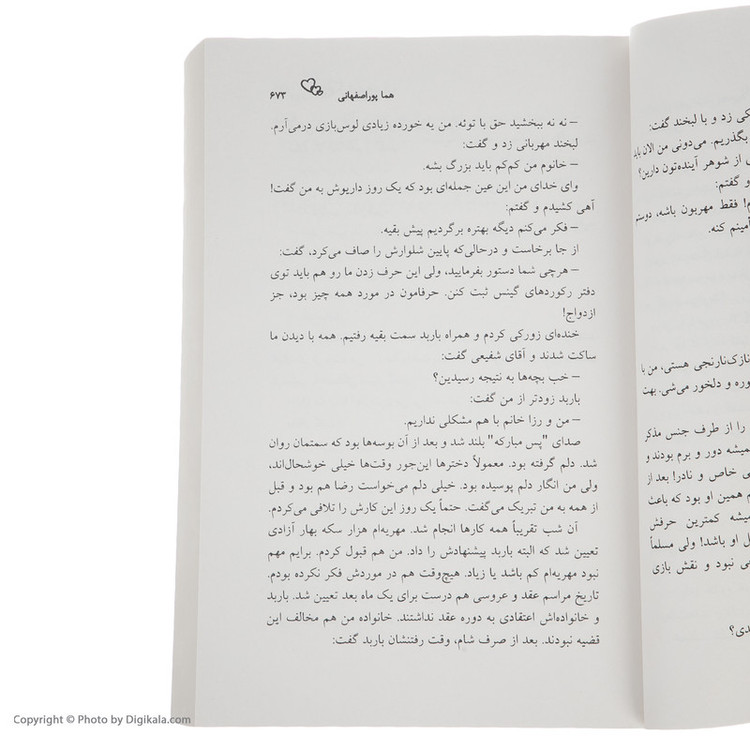 هما پوراصفهانی ۶۷۳
– نه نه ببخشید حق با توئه. من یه خورده زیادی لوس‌بازی درمی‌آرم.
لبخند مهربانی زد و گفت:
– خانوم من کم‌کم باید بزرگ بشه.
وای خدای من این عین جمله‌ای بود که یک روز داریوش به من گفت!
آهی کشیدم و گفتم:
– فکر می‌کنم دیگه بهتره برگردیم پیش بقیه.
از جا برخاست و درحالی‌که پایین شلوارش را صاف می‌کرد، گفت:
– هرچی شما دستور بفرمایید، ولی این حرف زدن ما رو هم باید توی
دفتر رکوردهای گینس ثبت کنن. حرفامون در مورد همه چیز بود، جز
ازدواج!
خنده‌ای زورکی کردم و همراه باربد سمت بقیه رفتیم. همه با دیدن ما
ساکت شدند و آقای شفیعی گفت:
– خب بچه‌ها به نتیجه رسیدین؟
باربد زودتر از من گفت:
– من و رزا خانم با هم مشکلی نداریم.
صدای "پس مبارکه" بلند شد و بعد از آن بوسه‌ها بود که سمتمان روان
شد. دلم گرفته بود. معمولاً دخترها این‌جور وقت‌ها خیلی خوشحال‌اند،
ولی من انگار دلم پوسیده بود. خیلی دلم می‌خواست رضا هم بود و قبل
از همه به من تبریک می‌گفت. حتماً یک روز این کارش را تلافی می‌کردم.
آن شب تقریباً همه کارها انجام شد. مهریه‌ام هزار سکه بهار آزادی
تعیین شد که البته باربد پیشنهادش را داد. من هم قبول کردم. برایم مهم
نبود مهریه‌ام کم باشد یا زیاد. هیچ‌وقت هم در موردش فکر نکرده بودم.
تاریخ مراسم عقد و عروسی هم درست برای یک ماه بعد تعیین شد. باربد
و خانواده‌اش اعتقادی به دوره عقد نداشتند. خانواده من هم مخالف این
قضیه نبودند. بعد از صرف شام، وقت رفتنشان باربد گفت:
زد و با لبخند گفت:
بگذریم. می‌دونی من الان باید
از شوهر آینده‌تون دارین؟
و گفتم:
فقط مهربون باشه، دوستم
کنه.
نازک‌نارنجی هستی، من با
و دلخور می‌شی. بهت
را از طرف جنس مذکر
دور و برم بودند و
خاص و نادر! بعد از
همین او بود که باعث
کمترین حرفش
او باشد! ولی مسلماً
نبود و نقش بازی
Copyright © Photo by Digikala.com